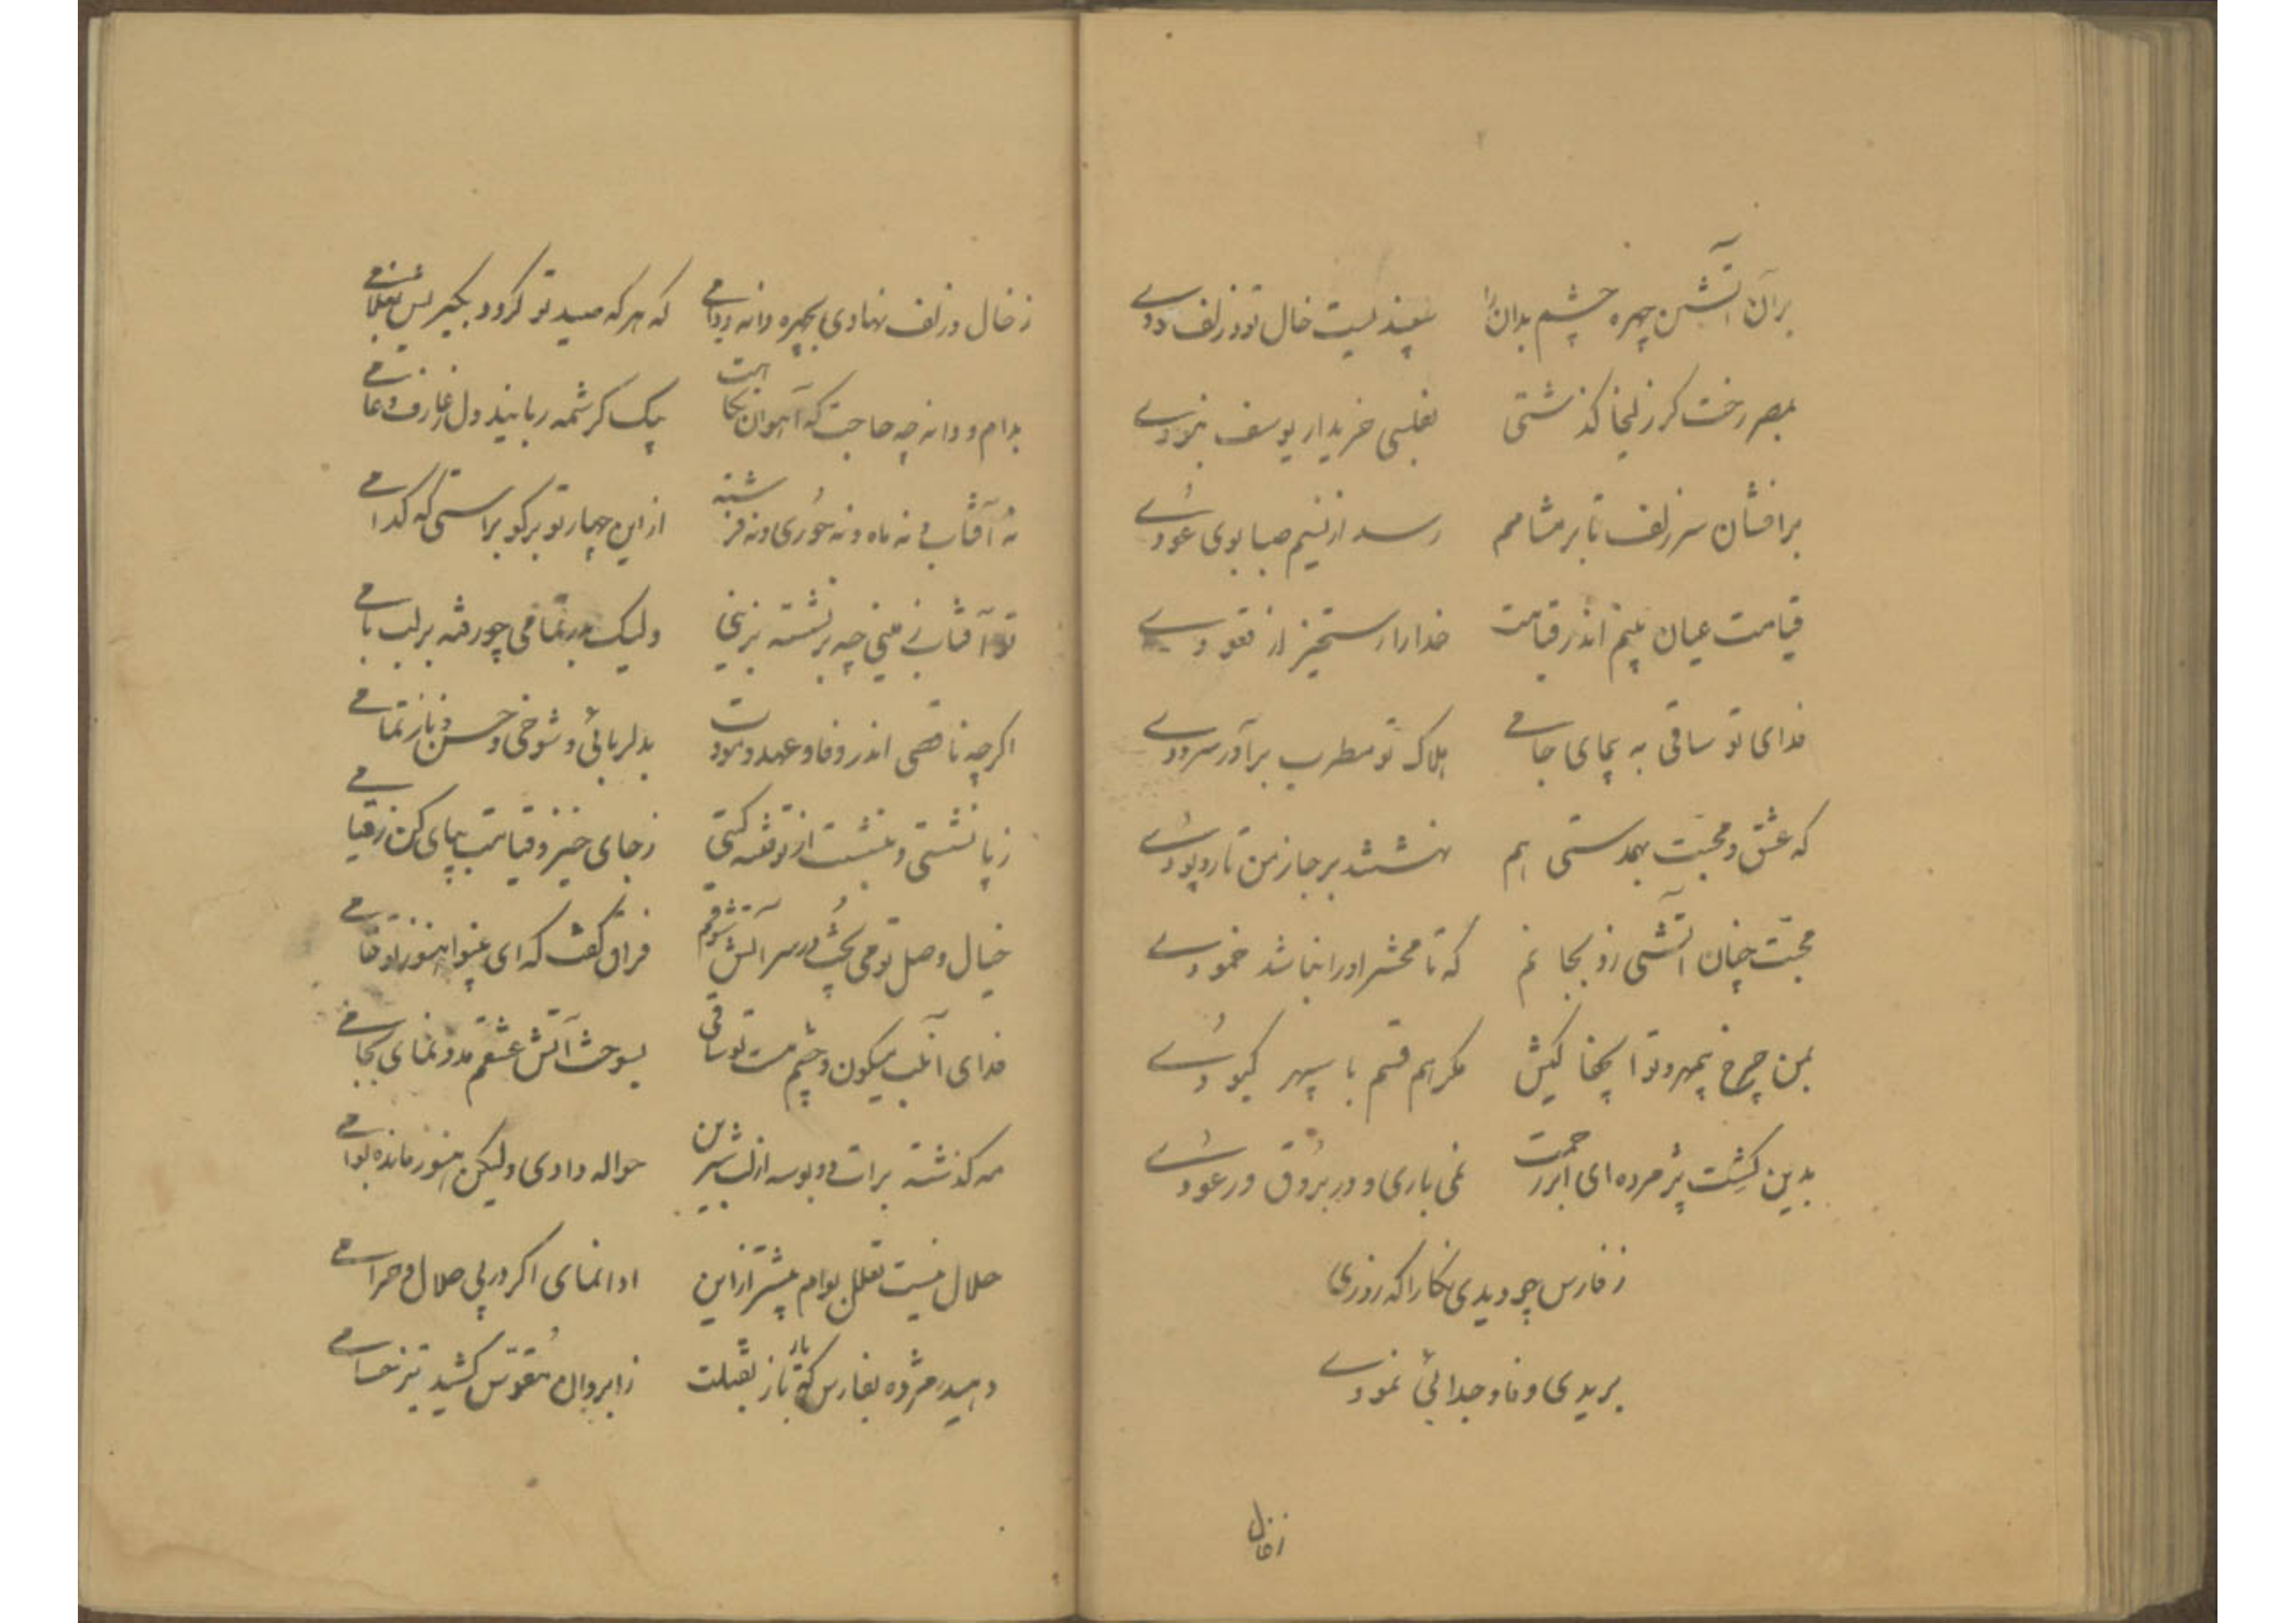 بران آتشین چهره چشم بدان را سپند لیست خال تو و زلف دودے
بمصر رخت کر زلیخا کذشتی بفلسی خریدار یوسف نبودے
برافشان سر زلف تا بر مشامم رسد از نسیم صبا بوی عودے
قیامت عیان بینم اندر قیامت خدارا رستخیز از قعودے
فدای تو ساقی به پیمای جامے هلاک تو مطرب برآور سرودے
که عشق و محبت بهمدستی هم نهشتند بر جا ز من تار و پودے
محبت چنان آتشی زد بجانم که تا محشر او را نباشد خمودے
بمن چرخ بیمهر و تو جفا کیش مکر هم قسم با سپهر کبودے
بدین کشت پژمرده ای ابر رحمت نمی باری و در بروق و رعودے
ز فارس چه دیدی نکارا که روزی
بریدی وفا و جدائی نمودے
ز خال
ز خال و زلف نهادی بچهره دانه و دامے که هر که صید تو کردد بکیریش بغلامے
بدام و دانه چه حاجت که آهوان بیک کرشمه ربایند دل ز عارف و عامے
نه آفتابے نه ماه و نه حوری و نه فرشته از این چهار تو برکو براستی که کدامے
تو آفتابے منی چه برنشسته بزینی ولیک بدر تمامی چو رفته بر لب بامے
اکرچه ناقصی اندر وفا و عهد و مودت بدلربائی و شوخی و حسن و ناز تمامے
ز پا نشستی و بنشست از تو فتنه کیتی ز جای خیز و قیامت بپای کن ز قیامے
خیال وصل تو می پخت در سر آتش شوقم فراق کفت که ای بینوا هنوز تو خامے
فدای آن لب میکون و چشم مست تو ساقی بسوخت آتش عشقم مدد نمای بجامے
مه کذشته برات دو بوسه از لب شیرین حواله دادی و لیکن هنوز مانده بوامے
حلال نیست تعلل بوام بیشتر از این ادا نمای اکر در پی حلال و حرامے
دهید مژده بفارس که باز بقتلت ز ابروان مقوس کشید تیز حسامے